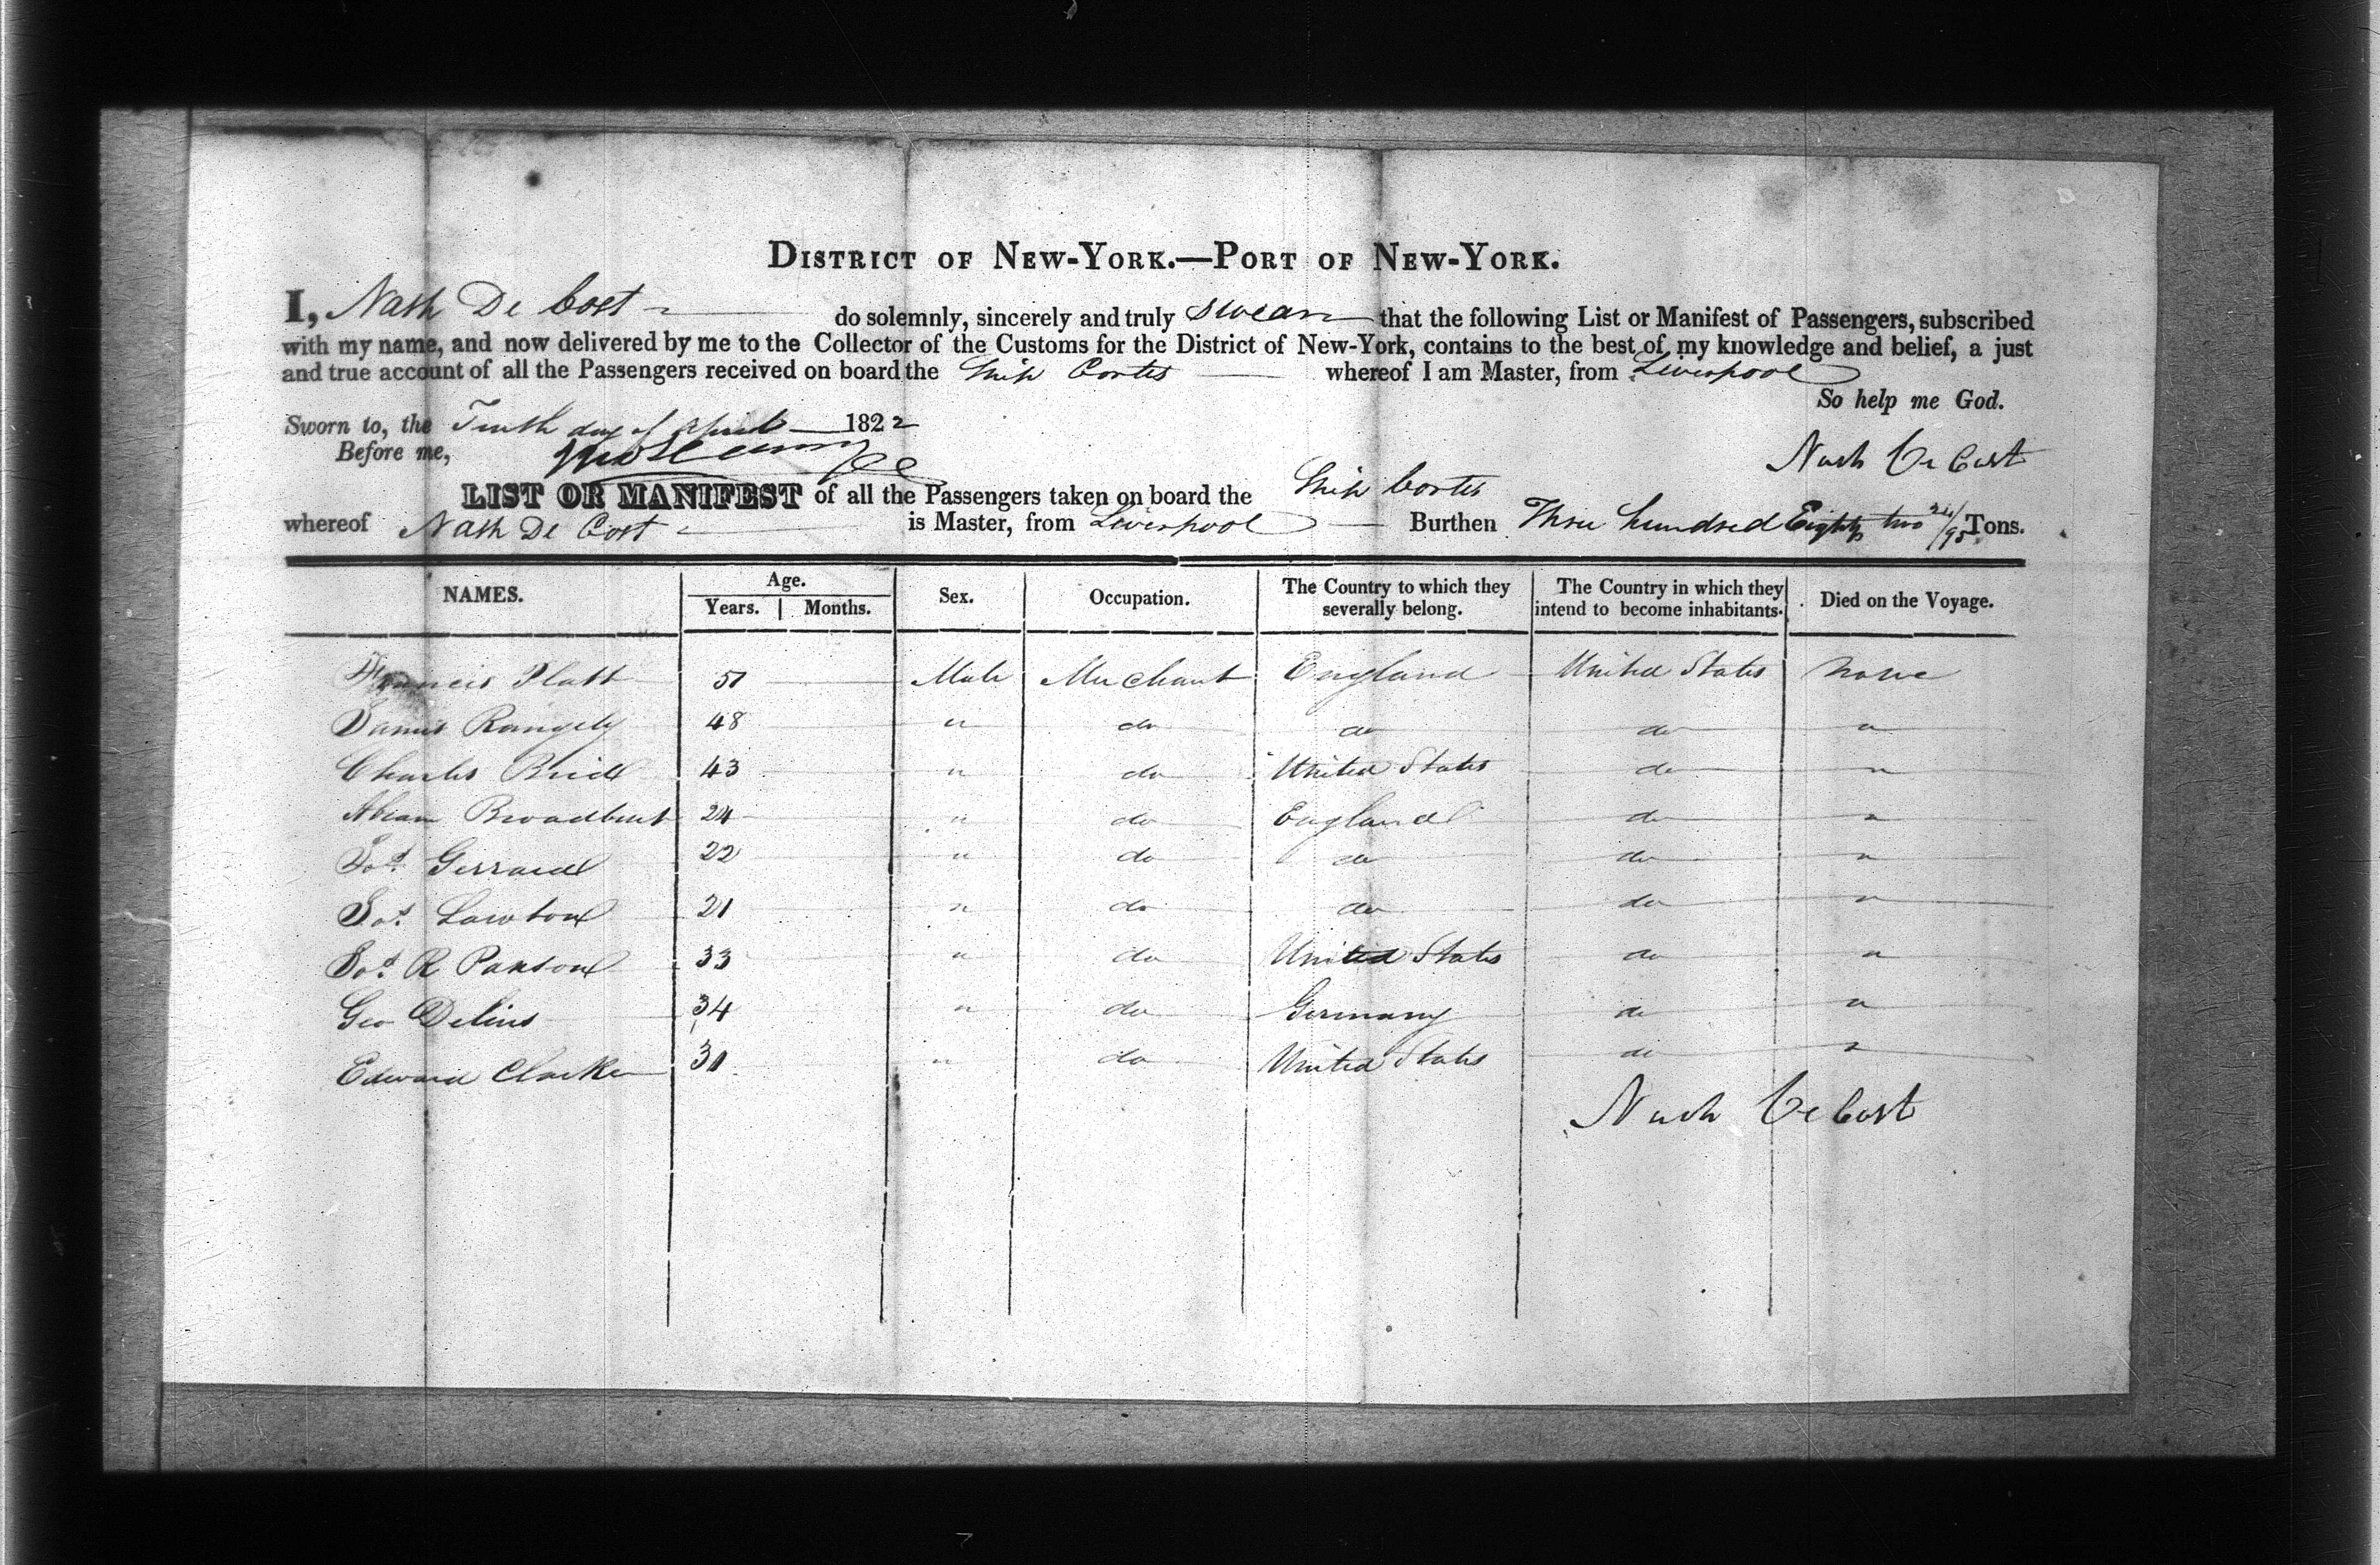 DISTRICT OF NEW-YORK.—PORT OF NEW-YORK.
I, Nash De Cost do solemnly, sincerely and truly swear that the following List or Manifest of Passengers, subscribed
with my name, and now delivered by me to the Collector of the Customs for the District of New-York, contains to the best of my knowledge and belief, a just
and true account of all the Passengers received on board the Ship Cortes whereof I am Master, from Liverpool
So help me God.
Sworn to, the Tenth day of April 1822
Before me,
Nash De Cost
LIST OR MANIFEST of all the Passengers taken on board the Ship Cortes
whereof Nash De Cost is Master, from Liverpool Burthen Three hundred Eighty two 24/95 Tons.
NAMES. Age. Years. Months. Sex. Occupation. The Country to which they severally belong. The Country in which they intend to become inhabitants. Died on the Voyage.
Francis Platt 51 Male Merchant England United States none
James Rangely 48 " do do do "
Charles 43 " do United States do "
Abram Broadbent 24 " do England do "
Jos. Gerrard 22 " do do do "
Jos. Lawton 21 " do do do "
Jos. R Paxson 33 " do United States do "
Geo Delius 34 " do Germany do "
Edward Clarke 31 " do United States do "
Nash De Cost